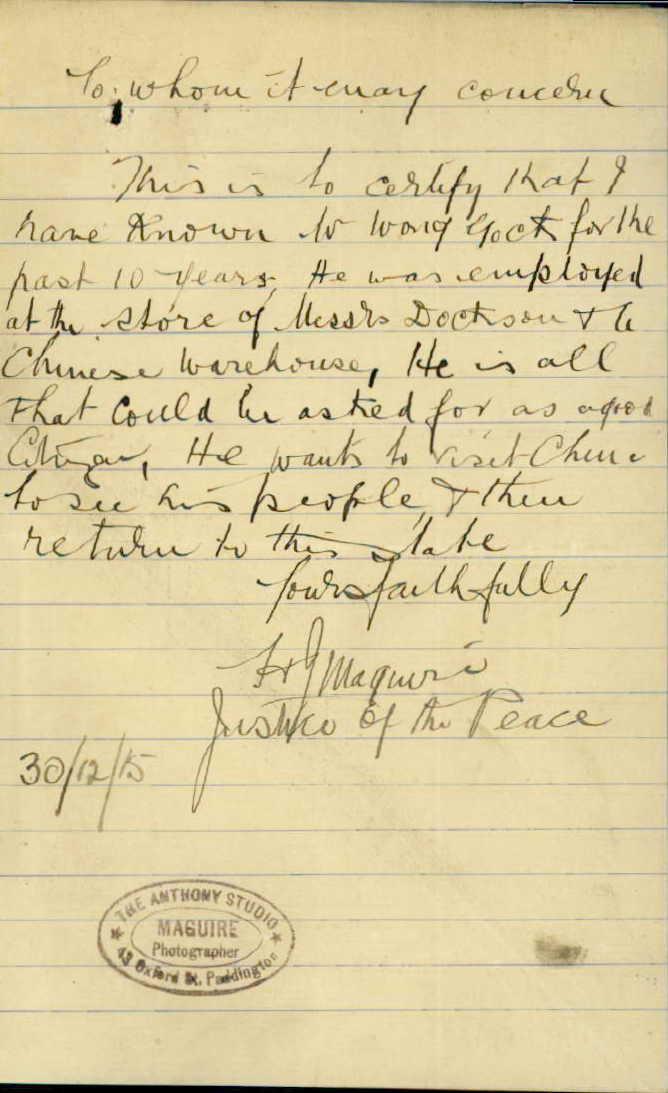 To whom it may concern
This is to certify that I
have Known Mr Wong Yock for the
past 10 years, He was employed
at the store of Messrs Dockson & Co
Chinese Warehouse, He is all
that could be asked for as a good
Citizen, He wants to visit China
to see his people, & then
return to this state
Yours faithfully
H J Maguire
Justice of the Peace
30/12/15
THE ANTHONY STUDIO
MAGUIRE
Photographer
43 Oxford St. Paddington